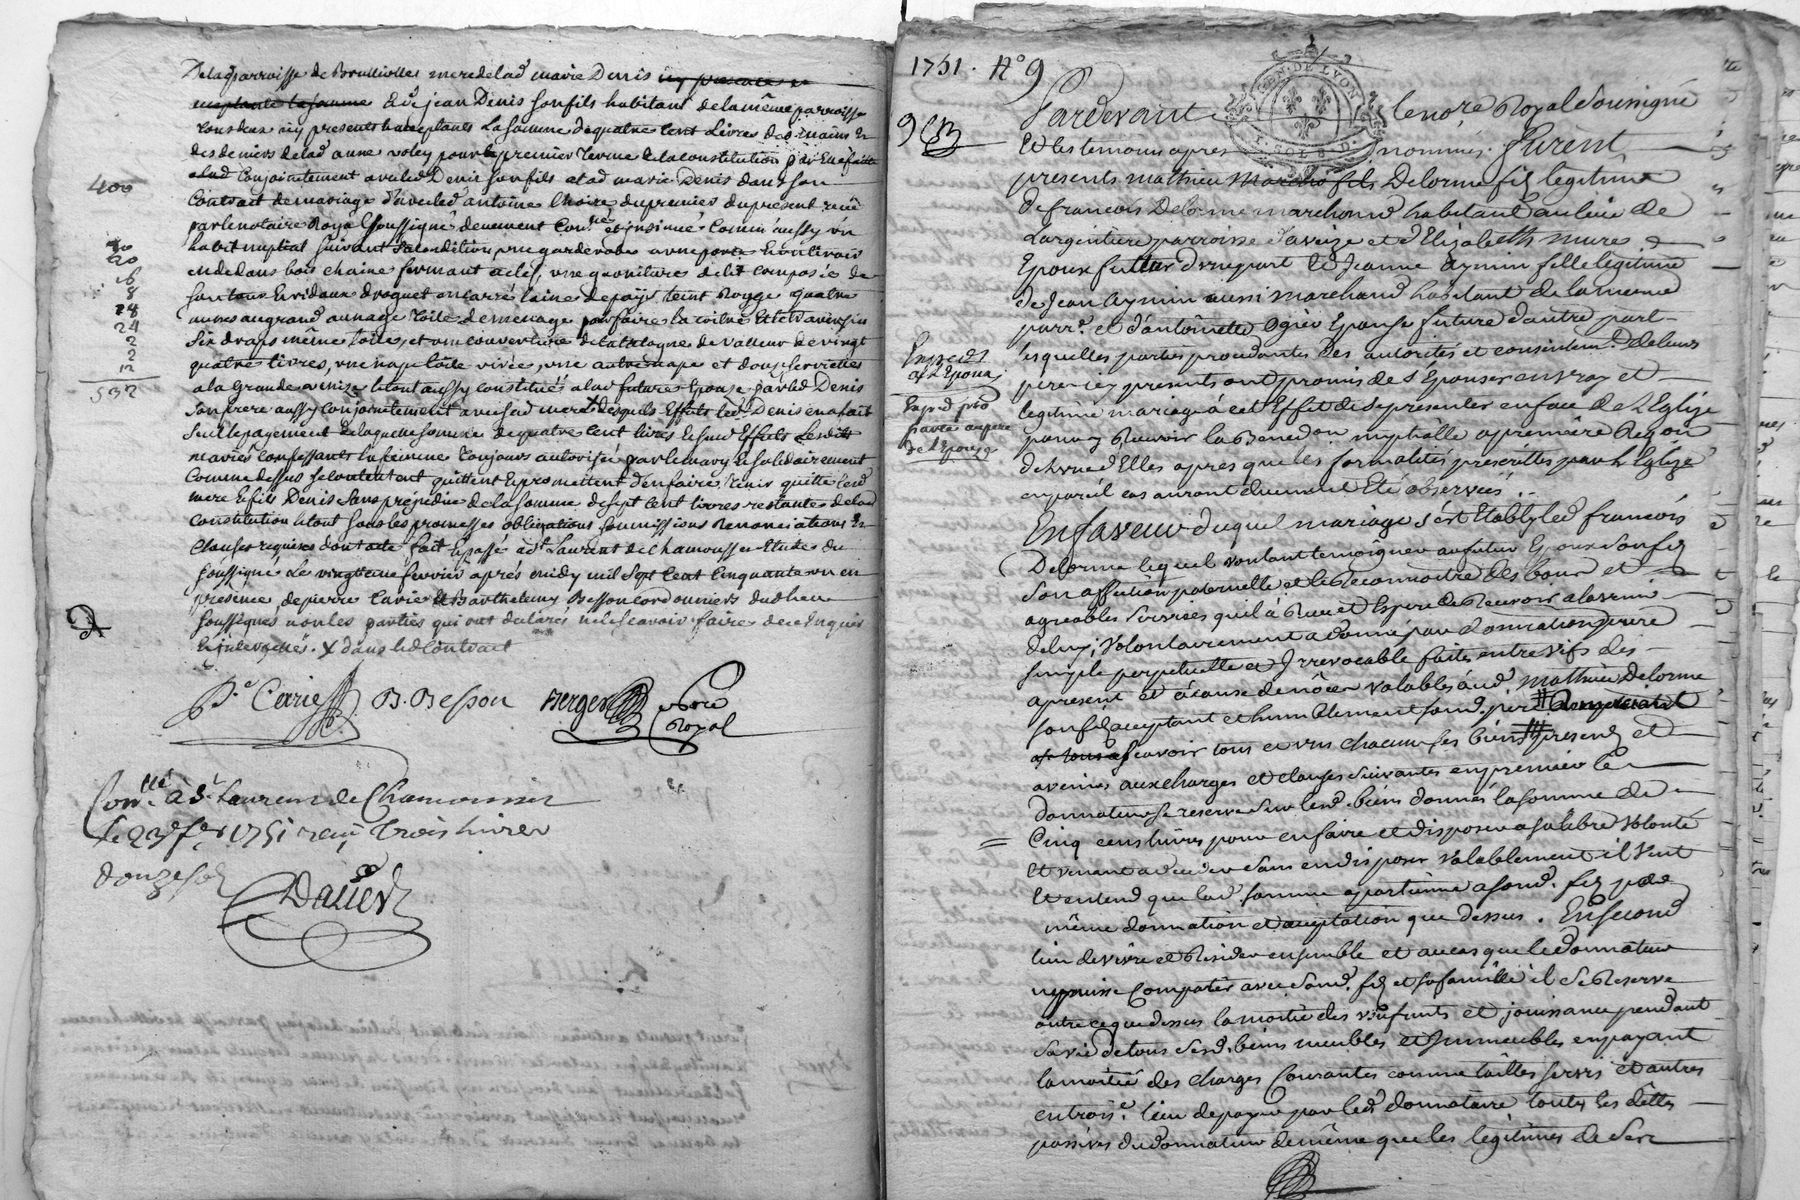 Delad parroisse de Brullioles mere delad marie Denis icy presente et
acceptante la somme Et de jean Denis son fils habitant de la même parroisse
tous deux icy presents & acceptants La somme de quatre Cent Livres des mains Et
des deniers delad anne voley pour le premier terme de la constitution par Elle faitte
alad Conjointement avec led Denis son fils a lad marie Denis dans son
400
Contrat de mariage d'avec led antoine du premier du present reçû
par le notaire Royal soussigné deuement Con.lé et insinué Comm'aussy un
habit nuptial suivant sa condition une garderobe a une porte
en dedans bois chaine fermant a clef, une garniture de lit composée de
30
20
16
8
28
24
2
2
12
532
rideaux droguet en laine de païs teint Rouge quatre
aunes au grand aunage toile de menage pour faire la coitre Et le traversin
six draps même toile, et une couverture de Catalogne de valleur de vingt
quatre livres, une nape toile une autre nape et douze serviettes
a la grande venise le tout aussy constitués a lad future Epouse par led Denis
son frere aussy conjointement avec sad mere desquels Effets led Denis en a fait
payement de laquelle somme de quatre Cent livres & susd Effets Lesdits
mariés Confessants la femme toujours autorisée par le mary & solidairement
Comme dessus se contentent quittent & promettent d'en faire tenir quitte lesd
mere & fils Denis sans prejudice de la somme de sept Cent livres restantes delad
Constitution le tout sous les promesses obligations soumissions Renonciations &
Clauses requises dont acte fait & passé a S.t Laurent de Chamousset Etude du
soussigné Le fevrier après midy mil sept Cent Cinquante un en
presence de pierre Carie & Barthelemy Besson cordonniers dud lieu
soussignés non les parties qui ont declarés ne le sçavoir faire de ce Enquis
& interpellés. X dans led Contrat
P.e Carie B. Besson Berger no.re
Royal
Con.lé à S.t Laurent de Chamousset
le 23e fer 1751 reçu trois livres
douze sols
Dauer
1751. N° 9
Pardevant le no.re Royal Soussigné
GEN. DE LYON
Et les temoins apres nommés. Furent
presents mathieu Delorme fils legitime
de francois Delorme marchand habitant au lieu de
Largentiere parroisse d'aveize et d'Elizabeth mure
Epoux futur d'une part Et Jeanne aymin fille legitime
de Jean Aymin aussi marchand habitant de la meme
parr.e et d'antoinette Ogier Epouse future d'autre part
Exped.
a l'Epoux
lesquelles parties procedantes des autorités et consentem.t de leurs
peres icy presents ont promis de s'Epouser en vray et
Exped.
au pere
de l'Epouse
legitime mariage à cet Effet de se presenter en face de L'Eglize
pour y Recevoir la Bened.on nuptialle a premiere Req.on
de l'une d'Elles apres que les formalités prescrittes par L'Eglize
en pareil cas auront duement Eté observées.
En faveur duquel mariage s'est Etably led francois
Delorme lequel voulant temoigner au futur Epoux son fils
son affection paternelle et le Reconnoitre des bons et
agreables services qu'il à Reçu et Espere de Recevoir a l'avenir
de luy, volontairement a donné par donnation pure
simple perpetuelle et Irrevocable faite entre vifs des
apresent et à cause de nôces valables aud. mathieu Delorme
son fils acceptant et humblement sond. pere
scavoir tous et uns chacuns ses biens presens et
avenirs aux charges et clauses suivantes en premier lieu
donnateur se reserve sur lesd. biens donnés la somme de
= Cinq cens livres pour en faire et disposer a sa libre volonté
Et venant a deceder sans en disposer valablement il veut
Et entend que lad. somme apartienne a sond. fils par
même donnation et acceptation que dessus. En second
lieu de vivre et Resider ensemble et au cas que le donnateur
ne puisse Compatir avec sond. fils et sa famille il se Reserve
outre ce que dessus la moitié des usufruits et jouissance pendant
sa vie de tous sesd. biens meubles et Immeubles en payant
la moitié des charges Courantes comme tailles servis et autres
en trois.e lieu de payer par led. donnataire toutes les dettes
passives du donnateur de même que les legitimes de ses